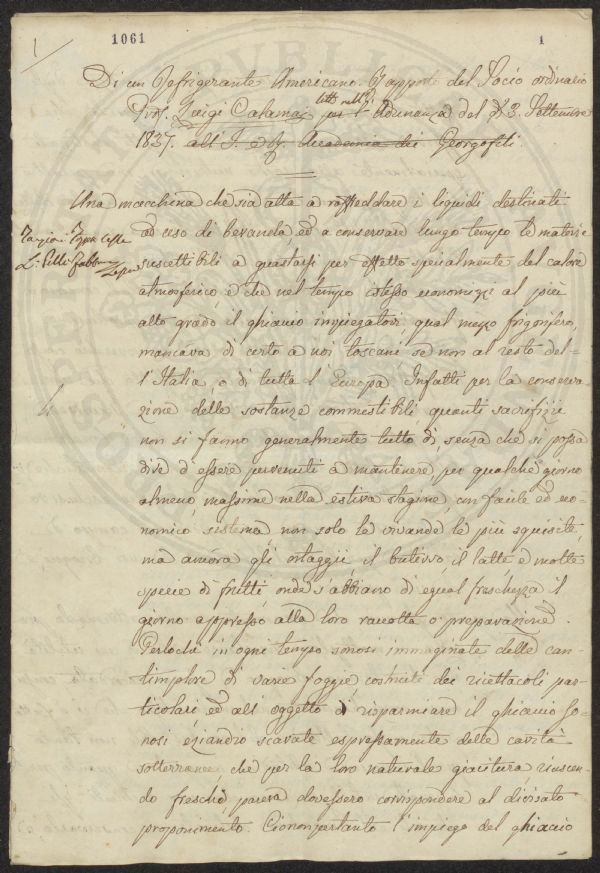 1061
1
Di un Refrigerante Americano. Rapporto del Socio ordinario
letto nell'
Prof. Luigi Calamai per l'Adunanza del dì 3. Settembre
1837. all'I. e R. Accademia dei Georgofili.
Una macchina che sia atta a raffreddare i liquidi destinati
ad uso di bevanda, ed a conservare lungo tempo le materie
suscettibili a guastarsi per effetto specialmente del calore
atmosferico, e che nel tempo istesso economizzi al più
alto grado il ghiaccio impiegatovi, qual mezzo frigorifero,
mancava di certo a noi toscani se non al resto del-
l'Italia, o di tutta l'Europa. Infatti per la conserva-
zione delle sostanze commestibili quanti sacrifizii
non si fanno generalmente tutto dì, senza che si possa
dire d'essere pervenuti a mantenere, per qualche giorno
almeno, massime nella estiva stagione, con facile ed eco-
nomico sistema, non solo le vivande le più squisite,
ma ancora gli ortaggii, il butirro, il latte e molte
specie di frutti, onde s'abbiano di egual freschezza il
giorno appresso alla loro raccolta o preparazione.
Perlochè in ogni tempo sonosi immaginate delle can-
timplore di varie foggie costruiti dei ricettacoli par-
ticolari, ed all'oggetto di risparmiare il ghiaccio so-
nosi eziandio scavate espressamente delle cavità
sotterranee, che per la loro naturale giacitura, riuscen-
do fresche, pareva dovessero corrispondere al divisato
proponimento. Ciononpertanto l'impiego del ghiaccio